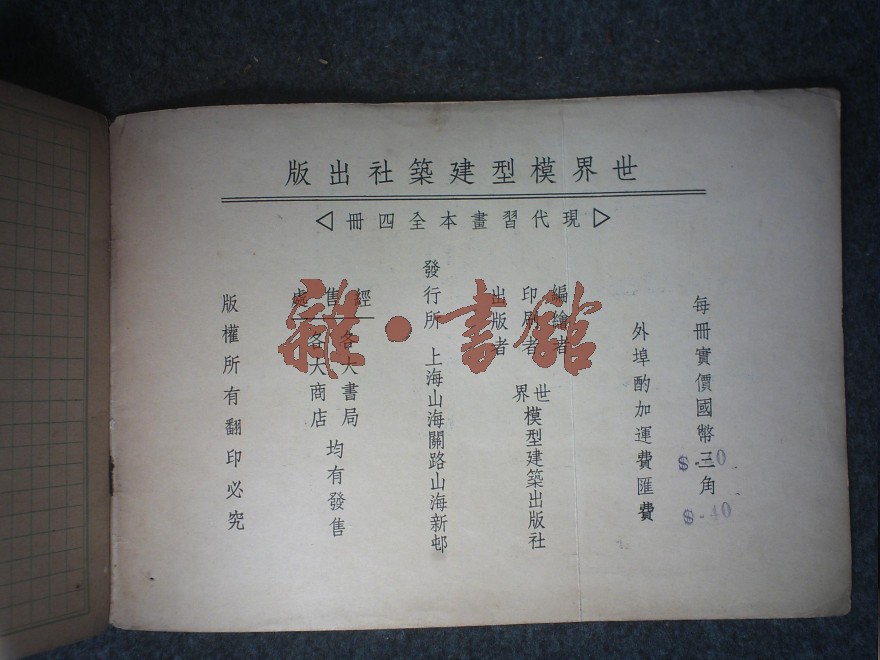 世界模型建築社出版
現代習畫本全四冊
每冊實價國幣三角
$-.40
外埠酌加運費匯費
編繪者
印刷者
出版者
世界模型建築出版社
發行所 上海山海關路山海新邨
經售處
各大書局
各大商店
均有發售
版權所有翻印必究
雜·書館